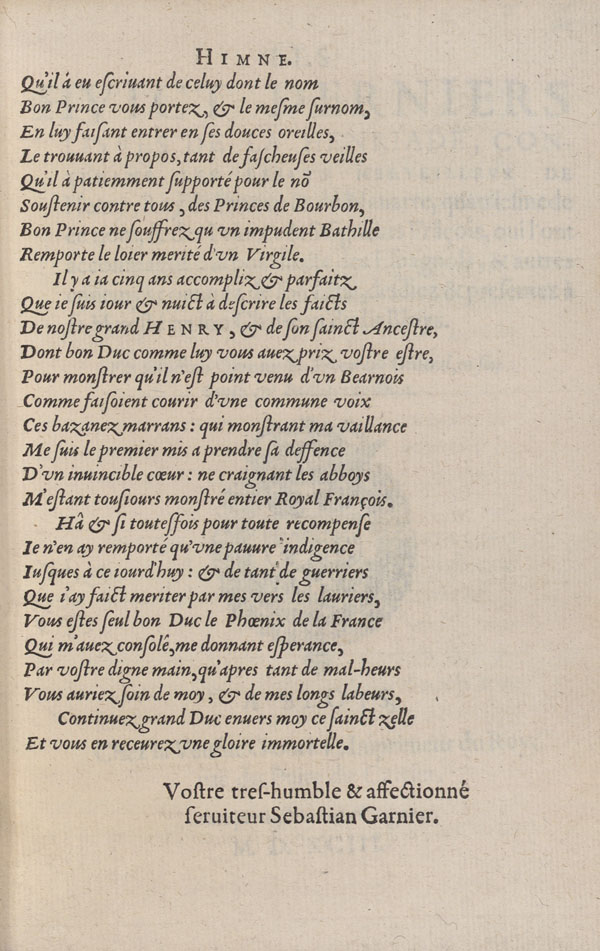 HIMNE.
Qu'il á eu eſcriuant de celuy dont le nom
Bon Prince vous portez, & le meſme ſurnom,
En luy faiſant entrer en ſes douces oreilles,
Le trouuant à propos, tant de faſcheuſes veilles
Qu'il à patiemment ſupporté pour le nõ
Souſtenir contre tous, des Princes de Bourbon,
Bon Prince ne ſouffrez qu vn impudent Bathille
Remporte le loier merité d'vn Virgile.
Il y a ia cinq ans accompliz & parfaitz
Que ie ſuis iour & nuict à deſcrire les faicts
De noſtre grand HENRY, & de ſon ſainct Anceſtre,
Dont bon Duc comme luy vous auez priz voſtre eſtre,
Pour monſtrer qu'il n'eſt point venu d'vn Bearnois
Comme faiſoient courir d'vne commune voix
Ces bazanez marrans : qui monſtrant ma vaillance
Me ſuis le premier mis a prendre ſa deffence
D'vn inuincible cœur : ne craignant les abboys
M'eſtant touſiours monſtré entier Royal François.
Hâ & ſi touteſfois pour toute recompenſe
Ie n'en ay remporté qu'vne pauure indigence
Iuſques à ce iourd'huy : & de tant de guerriers
Que i'ay faict meriter par mes vers les lauriers,
Vous eſtes ſeul bon Duc le Phœnix de la France
Qui m'auez conſolê, me donnant eſperance,
Par voſtre digne main, qu'apres tant de mal-heurs
Vous auriez ſoin de moy, & de mes longs labeurs,
Continuez grand Duc enuers moy ce ſainct zelle
Et vous en receurez vne gloire immortelle.
Voſtre treſ-humble & affectionné
ſeruiteur Sebaſtian Garnier.